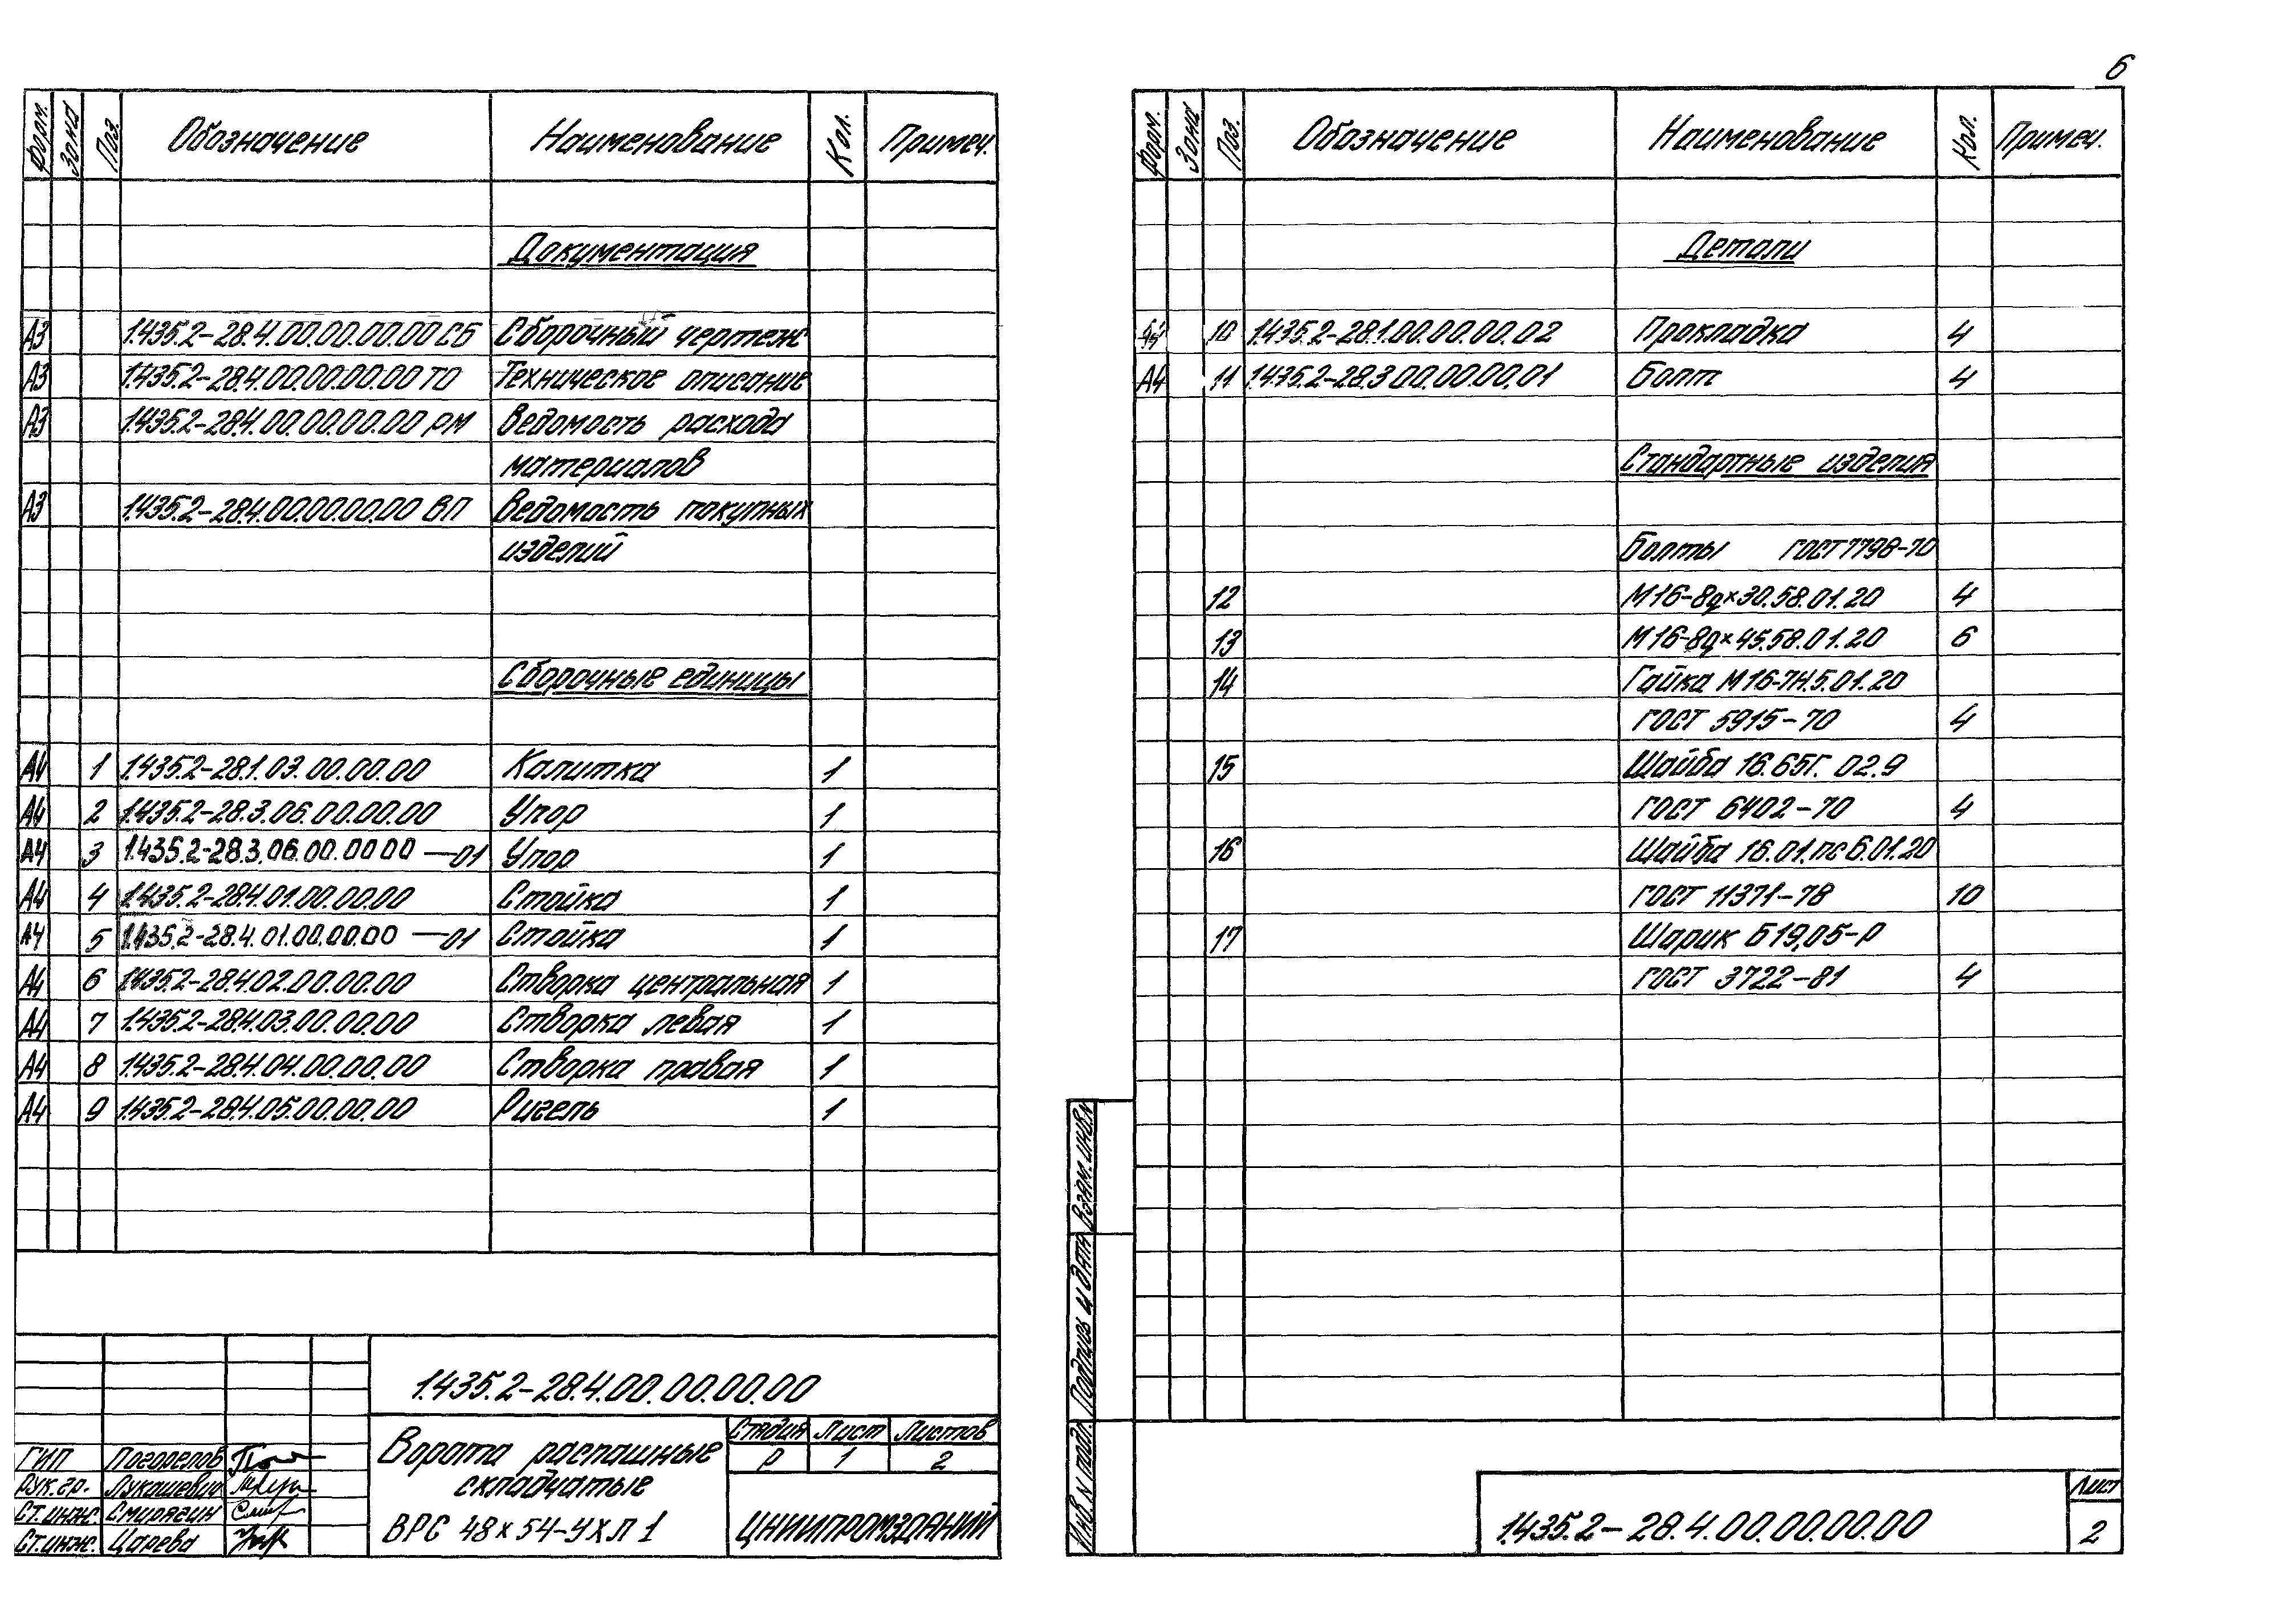 6
Форм. Зона Поз. Обозначение Наименование Кол. Примеч.
Документация
А3 1.435.2-28.4.00.00.00.00 СБ Сборочный чертеж
А3 1.435.2-28.4.00.00.00.00 ТО Техническое описание
А3 1.435.2-28.4.00.00.00.00 РМ Ведомость расхода
материалов
А3 1.435.2-28.4.00.00.00.00 ВП Ведомость покупных
изделий
Сборочные единицы
А4 1 1.435.2-28.1.03.00.00.00 Калитка 1
А4 2 1.435.2-28.3.06.00.00.00 Упор 1
А4 3 1.435.2-28.3.06.00.00 00 —01 Упор 1
А4 4 1.435.2-28.4.01.00.00.00 Стойка 1
А4 5 1.435.2-28.4.01.00.00.00 —01 Стойка 1
А4 6 1.435.2-28.4.02.00.00.00 Створка центральная 1
А4 7 1.435.2-28.4.03.00.00.00 Створка левая 1
А4 8 1.435.2-28.4.04.00.00.00 Створка правая 1
А4 9 1.435.2-28.4.05.00.00.00 Ригель 1
1.435.2-28.4.00.00.00.00
Ворота распашные
складчатые
ВРС 48×54-УХЛ 1
Стадия Лист Листов
Р 1 2
ЦНИИПРОМЗДАНИЙ
ГИП Погорелов
Рук.гр. Лукашевич
Ст.инж. Смирягин
Ст.инж. Царева
Форм. Зона Поз. Обозначение Наименование Кол. Примеч.
Детали
10 1.435.2-28.1.00.00.00.02 Прокладка 4
А4 11 1.435.2-28.3.00.00.00.01 Болт 4
Стандартные изделия
Болты ГОСТ 7798-70
12 М16-8g×30.58.01.20 4
13 М16-8g×45.58.01.20 6
14 Гайка М16-7Н.5.01.20
ГОСТ 5915-70 4
15 Шайба 16.65Г. 02.9
ГОСТ 6402-70 4
16 Шайба 16.01.пс6.01.20
ГОСТ 11371-78 10
17 Шарик Б19,05-Р
ГОСТ 3722-81 4
Взам.инв.№
Подпись и дата
Инв.№ подл.
1.435.2-28.4.00.00.00.00
Лист
2